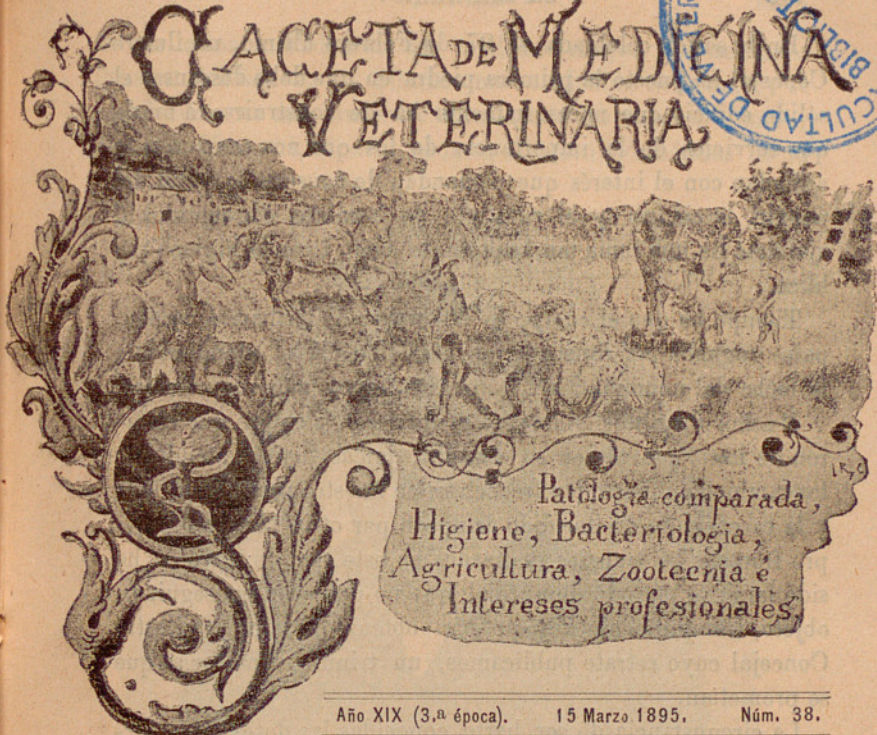 GACETA DE MEDICINA
VETERINARIA
Patología comparada,
Higiene, Bacteriología,
Agricultura, Zootecnia é
Intereses profesionales,
Año XIX (3.ª época). 15 Marzo 1895. Núm. 38.